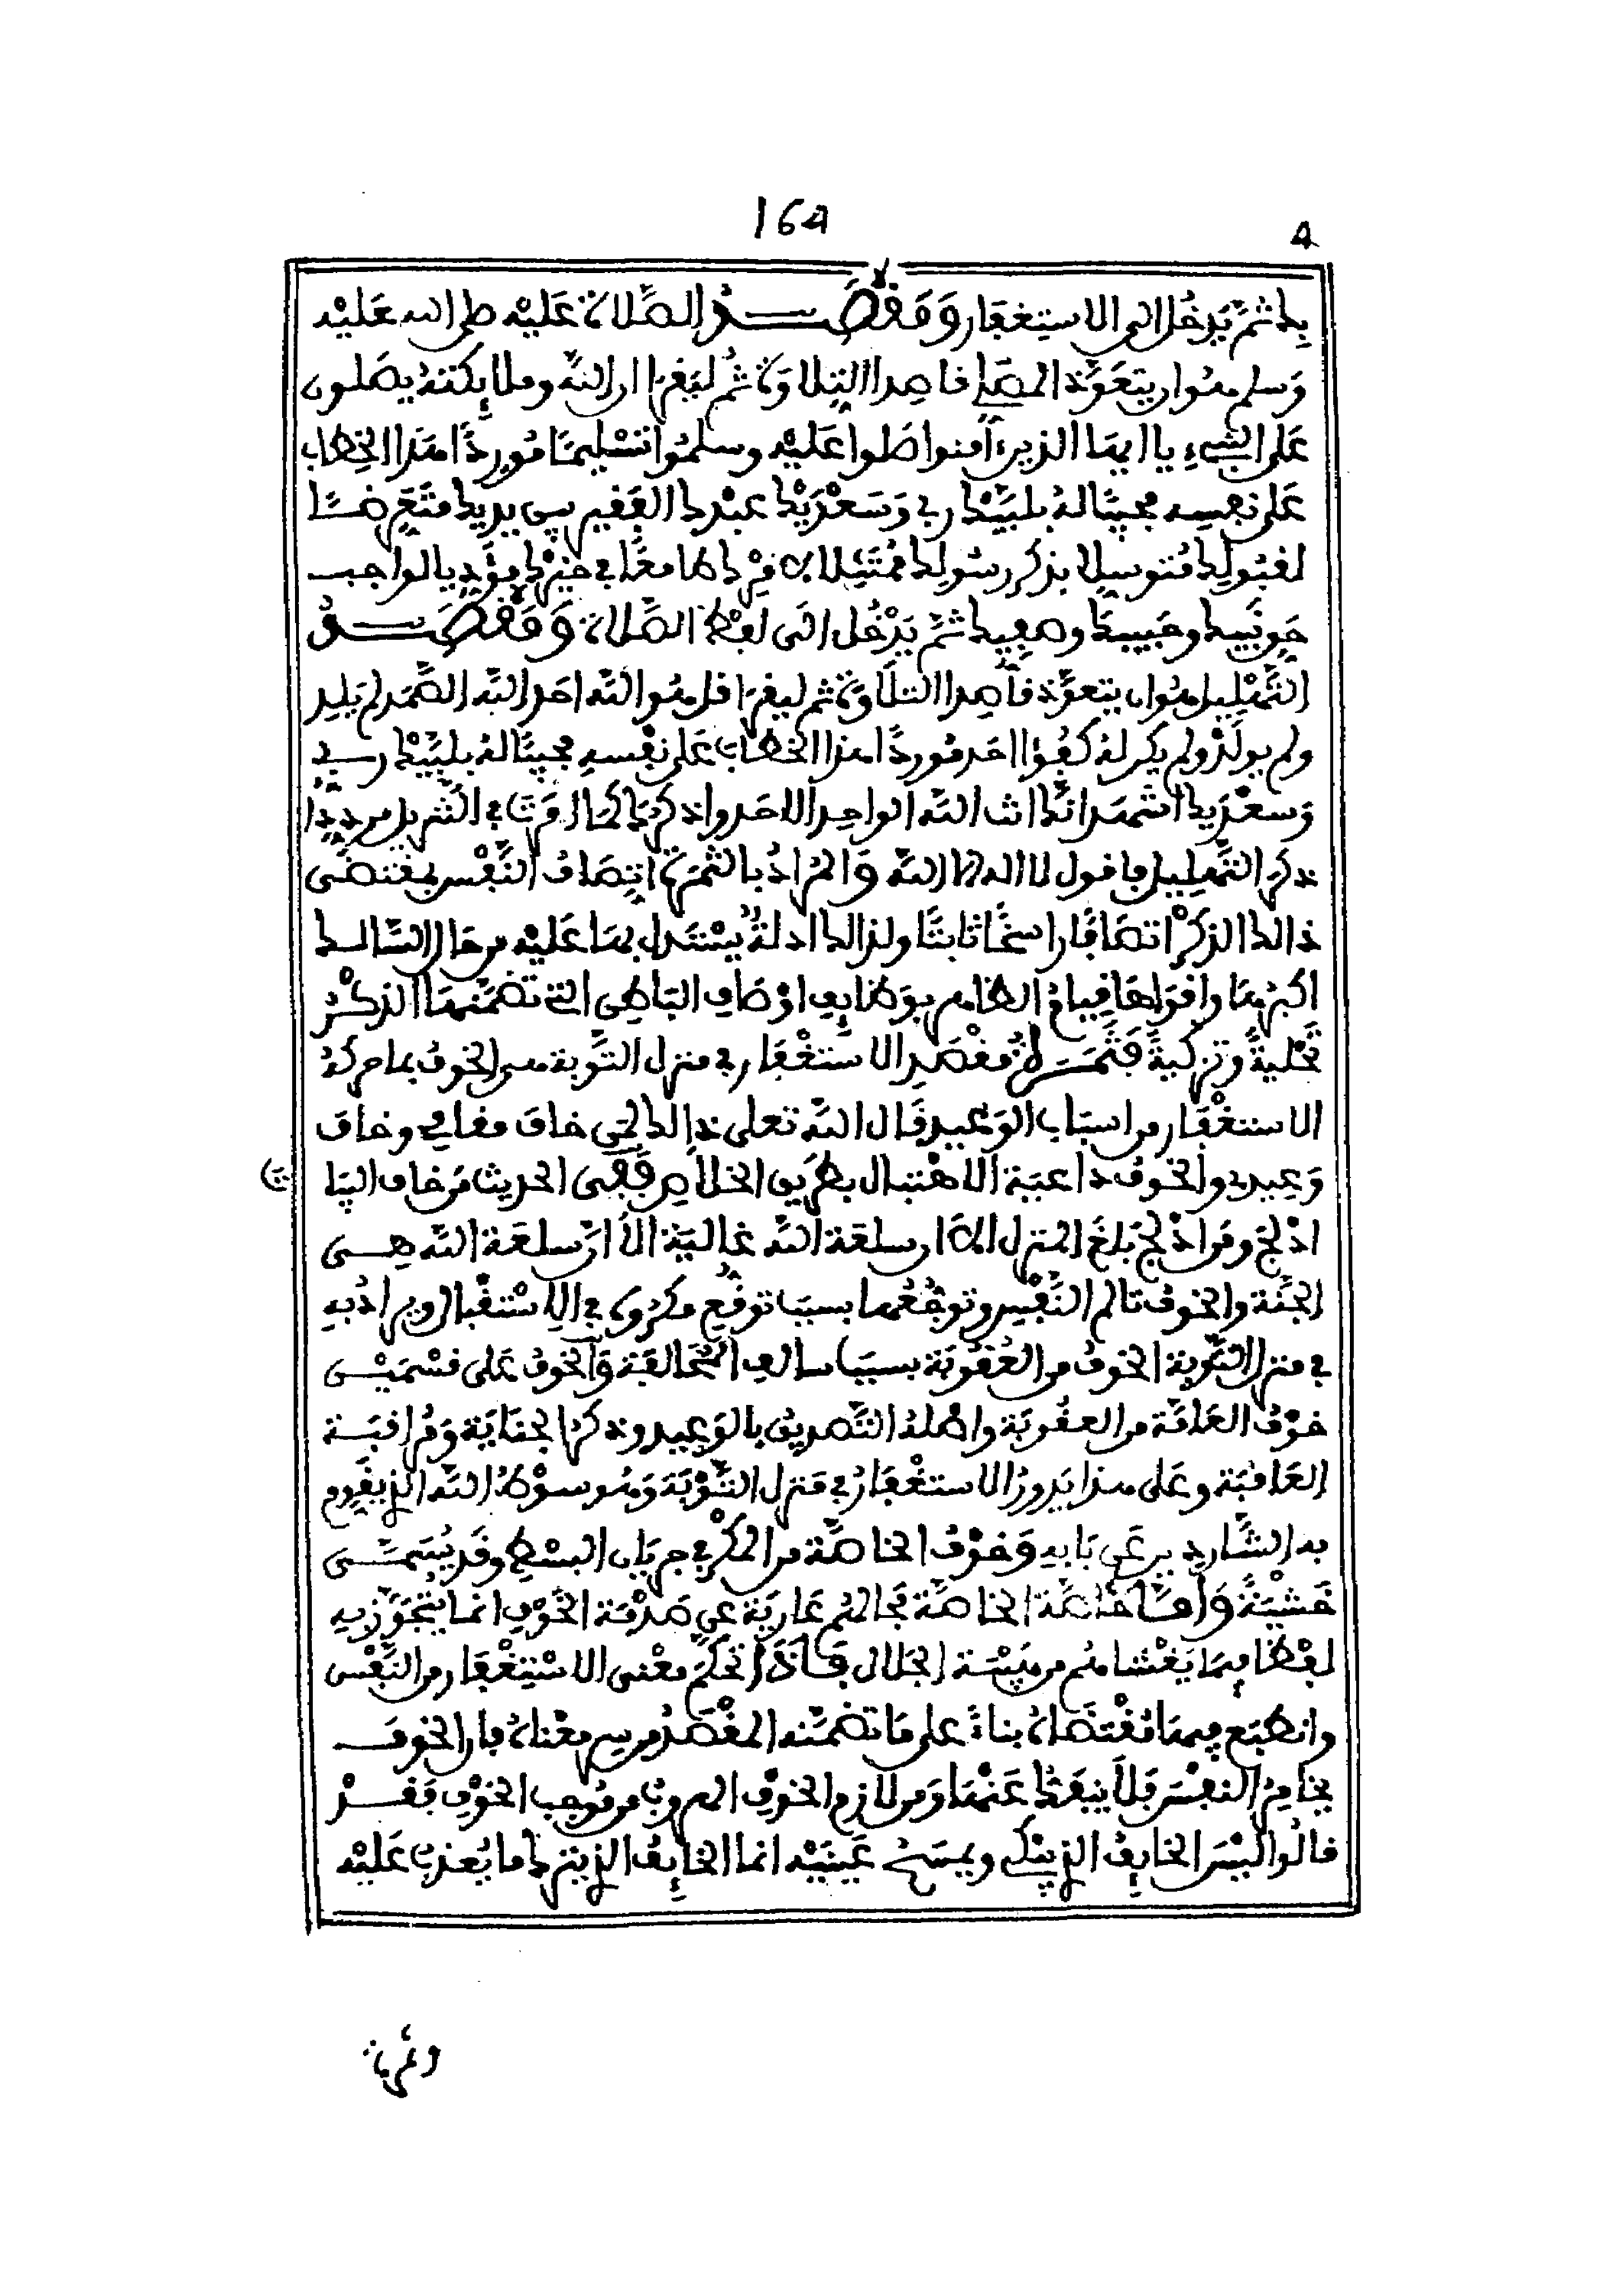 164
4
بك ثم يدخل الى الاستغفار ومقصد الصلاة عليه صلى الله عليه
وسلم هوان يتعوذ المصلي قاصدا التلاوة ثم ليقرا ان الله وملائكته يصلون
على النبيء يا ايها الذين ءامنوا صلوا عليه وسلموا تسليما موردا هذا الخطاب
على نفسه مجيبا له بلبيك ربي وسعديك عبدك الفقير بين يديك متعرضا
لقبولك متوسلا بذكر رسولك ممتثلا لامرك طامعا في خيرك مؤديا لواجب
حق نبيك وحبيبك وصفيك ثم يدخل الى لفظ الصلاة ومقصد
التهليل هوان يتعوذ قاصدا التلاوة ثم ليقرا قل هو الله احد الله الصمد لم يلد
ولم يولد ولم يكن له كفؤا احد موردا هذا الخطاب على نفسه مجيبا له بلبيك ربي
وسعديك اشهد انك انت الله الواحد الاحد واذكرك كما امرت في التنزيل مرددا
ذكر التهليل فاقول لا اله الا الله والمراد بالثمرة اتصاف النفس بمقتضى
ذالك الذكر اتصافا راسخا ثابتا ولذالك ادلة يستدل بها عليه من حال السالك
اكبرها واقواها قيام الظاهر بوظائف اوصاف الباطن التي تضمنها الذكر
تحلية وتزكية فثمرة مقصد الاستغفار في منزل التوبة هي الخوف بما حركه
الاستغفار من اسباب الوعيد قال الله تعلى ذالك لمن خاف مقامي وخاف
وعيد والخوف داعية الاهتبال بطريق الخلاص ففي الحديث من خاف البيات
ادلج ومن ادلج بلغ المنزل الا ان سلعة الله غالية الا ان سلعة الله هي
الجنة والخوف تالم النفس وتوجعها بسبب توقع مكروه في الاستقبال ويراد به
في منزل التوبة الخوف من العقوبة بسبب سالف المخالفة والخوف على قسمين
خوف العامة من العقوبة واصله التصديق بالوعيد وذكر الجناية ومراقبة
العاقبة وعلى هذا يدور الاستغفار في منزل التوبة وهو سوط الله الذي يقوم
به الشارد ين عن بابه وخوف الخاصة من المكر في جريان البسط وقد يسمى
خشية واما خاصة الخاصة فحالهم عارية عن صدمة الخوف انما يتجوز فيه
لفظا فيما يغشاهم من هيبة الجلال فاذا تحكم معنى الاستغفار من النفس
وانطبع فيها مقتضاه بناء على ما تضمنه المقصد من سر معناه فان الخوف
يخامر النفس فلا ينفك عنها ومن لازم الخوف الهروب من موجب الخوف فقد
قالوا ليس الخايف الذي يبكي ويمسح عينيه انما الخايف الذي يترك ما يعذب عليه